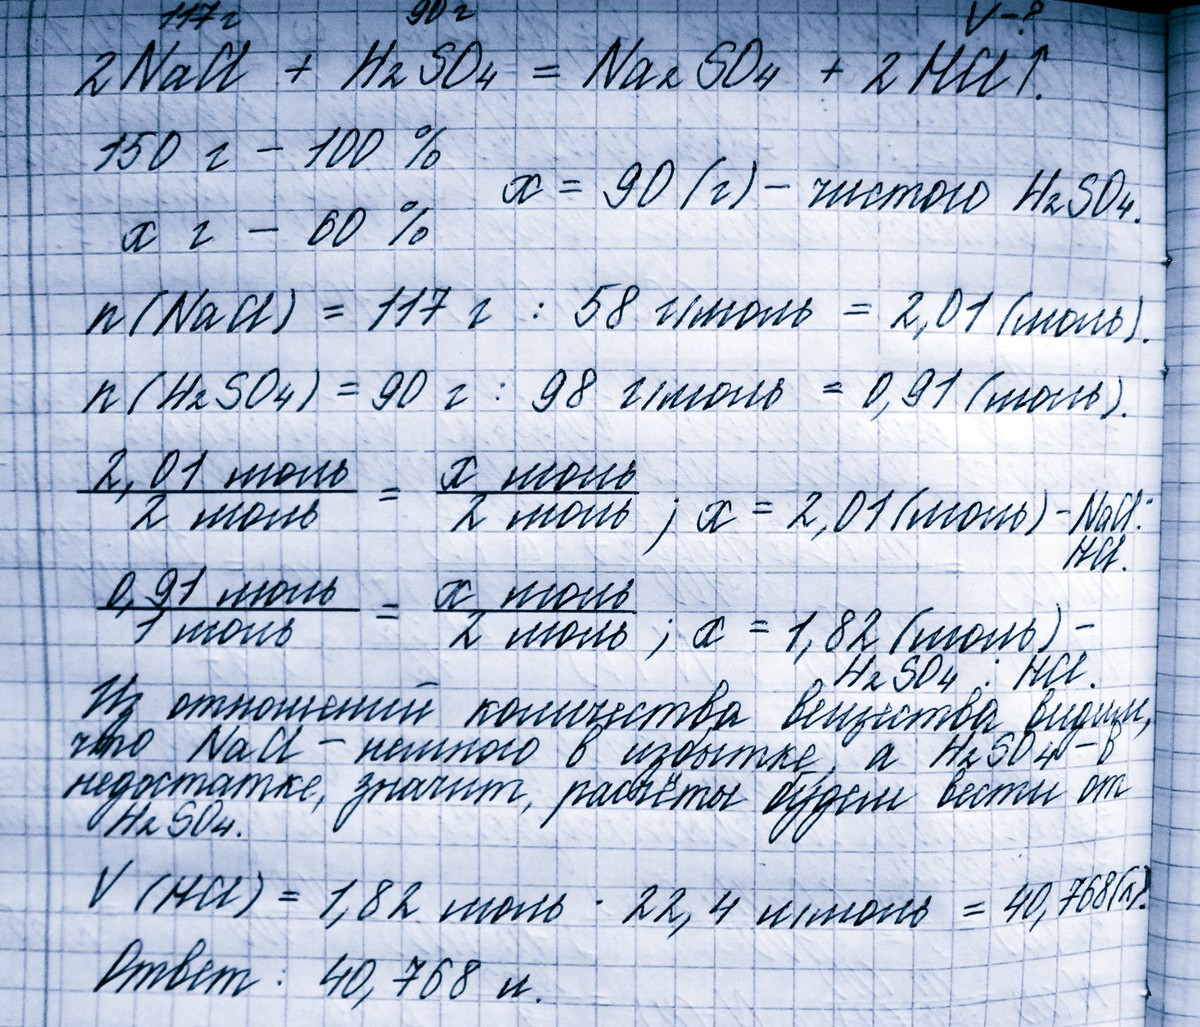 117 г 90 г V - ?
2NaCl + H₂SO₄ = Na₂SO₄ + 2HCl↑.
150 г - 100 %
x = 90 (г) - чистого H₂SO₄.
x г - 60 %
n(NaCl) = 117 г : 58 г/моль = 2,01 (моль).
n(H₂SO₄) = 90 г : 98 г/моль = 0,91 (моль).
2,01 моль / 2 моль = x моль / 2 моль ; x = 2,01 (моль) - NaCl :
HCl.
0,91 моль / 1 моль = x моль / 2 моль ; x = 1,82 (моль) -
H₂SO₄ : HCl.
Из отношений количества вещества видим,
что NaCl - немного в избытке, а H₂SO₄ - в
недостатке, значит, расчёты будем вести от
H₂SO₄.
V (HCl) = 1,82 моль · 22,4 л/моль = 40,768 (л).
Ответ : 40,768 л.